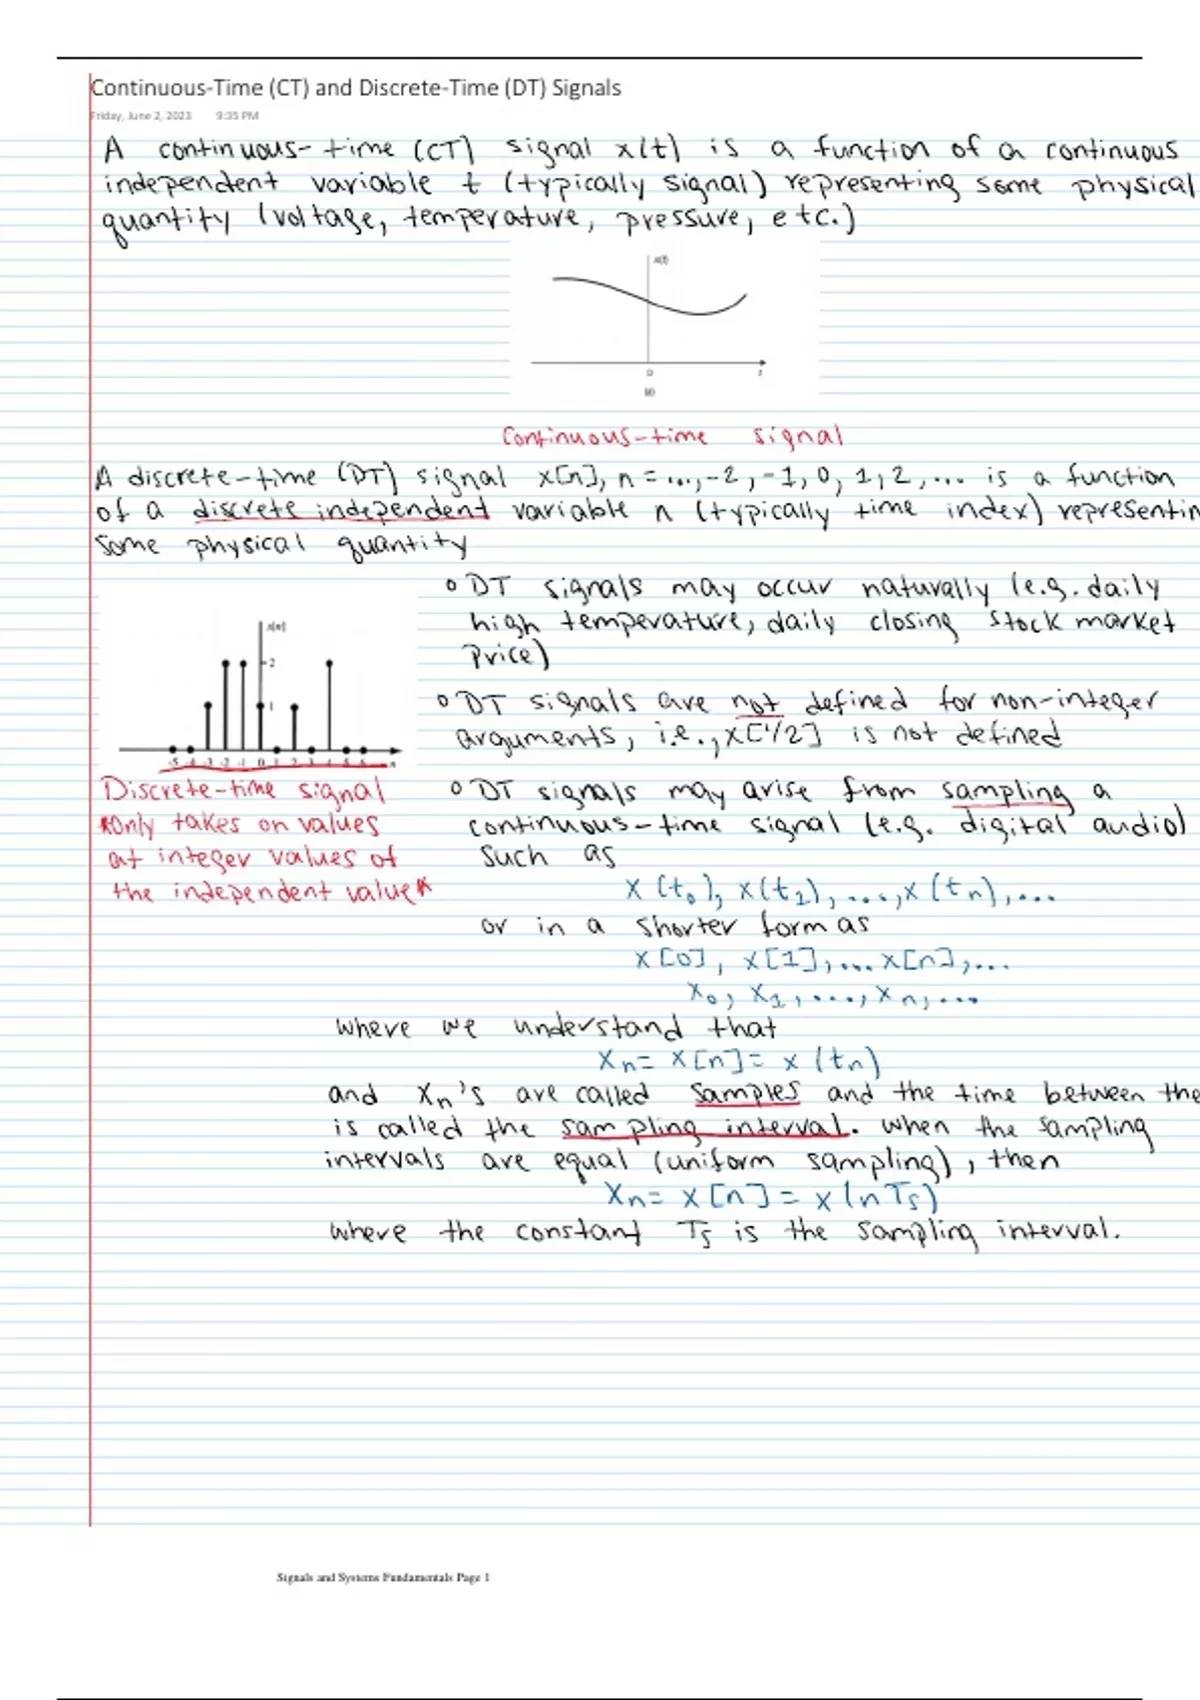 Continuous-Time (CT) and Discrete-Time (DT) Signals
Friday, June 2, 2023 9:35 PM
A continuous-time (CT) signal x(t) is a function of a continuous
independent variable t (typically signal) representing some physical
quantity (voltage, temperature, pressure, etc.)
x(t)
0
t
Continuous-time signal
A discrete-time (DT) signal x[n], n = ..., -2, -1, 0, 1, 2, ... is a function
of a discrete independent variable n (typically time index) representin
some physical quantity
x[n]
2
1
-5 -4 -3 -2 -1 0 1 2 3 4 5 6 n
Discrete-time signal
*Only takes on values
at integer values of
the independent value*
o DT signals may occur naturally (e.g. daily
high temperature, daily closing stock market
price)
o DT signals are not defined for non-integer
arguments, i.e., x[1/2] is not defined
o DT signals may arise from sampling a
continuous-time signal (e.g. digital audio)
such as
x(t₀), x(t₁), ..., x(tₙ), ...
or in a shorter form as
x[0], x[1], ... x[n], ...
x₀, x₁, ..., xₙ, ...
where we understand that
xₙ = x[n] = x(tₙ)
and xₙ's are called samples and the time between the
is called the sampling interval. When the sampling
intervals are equal (uniform sampling), then
xₙ = x[n] = x(nTₛ)
where the constant Tₛ is the sampling interval.
Signals and Systems Fundamentals Page 1